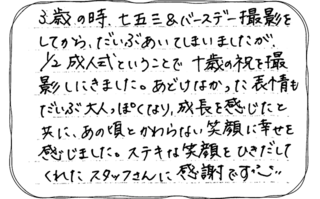 3歳の時、七五三&バースデー撮影を
してから、だいぶあいてしまいましたが、
1/2成人式ということで十歳の祝を撮
影しにきました。あどけなかった表情も
だいぶ大人っぽくなり、成長を感じたと
共に、あの頃とかわらない笑顔に幸せを
感じました。ステキな笑顔をひきだして
くれたスタッフさんに感謝です